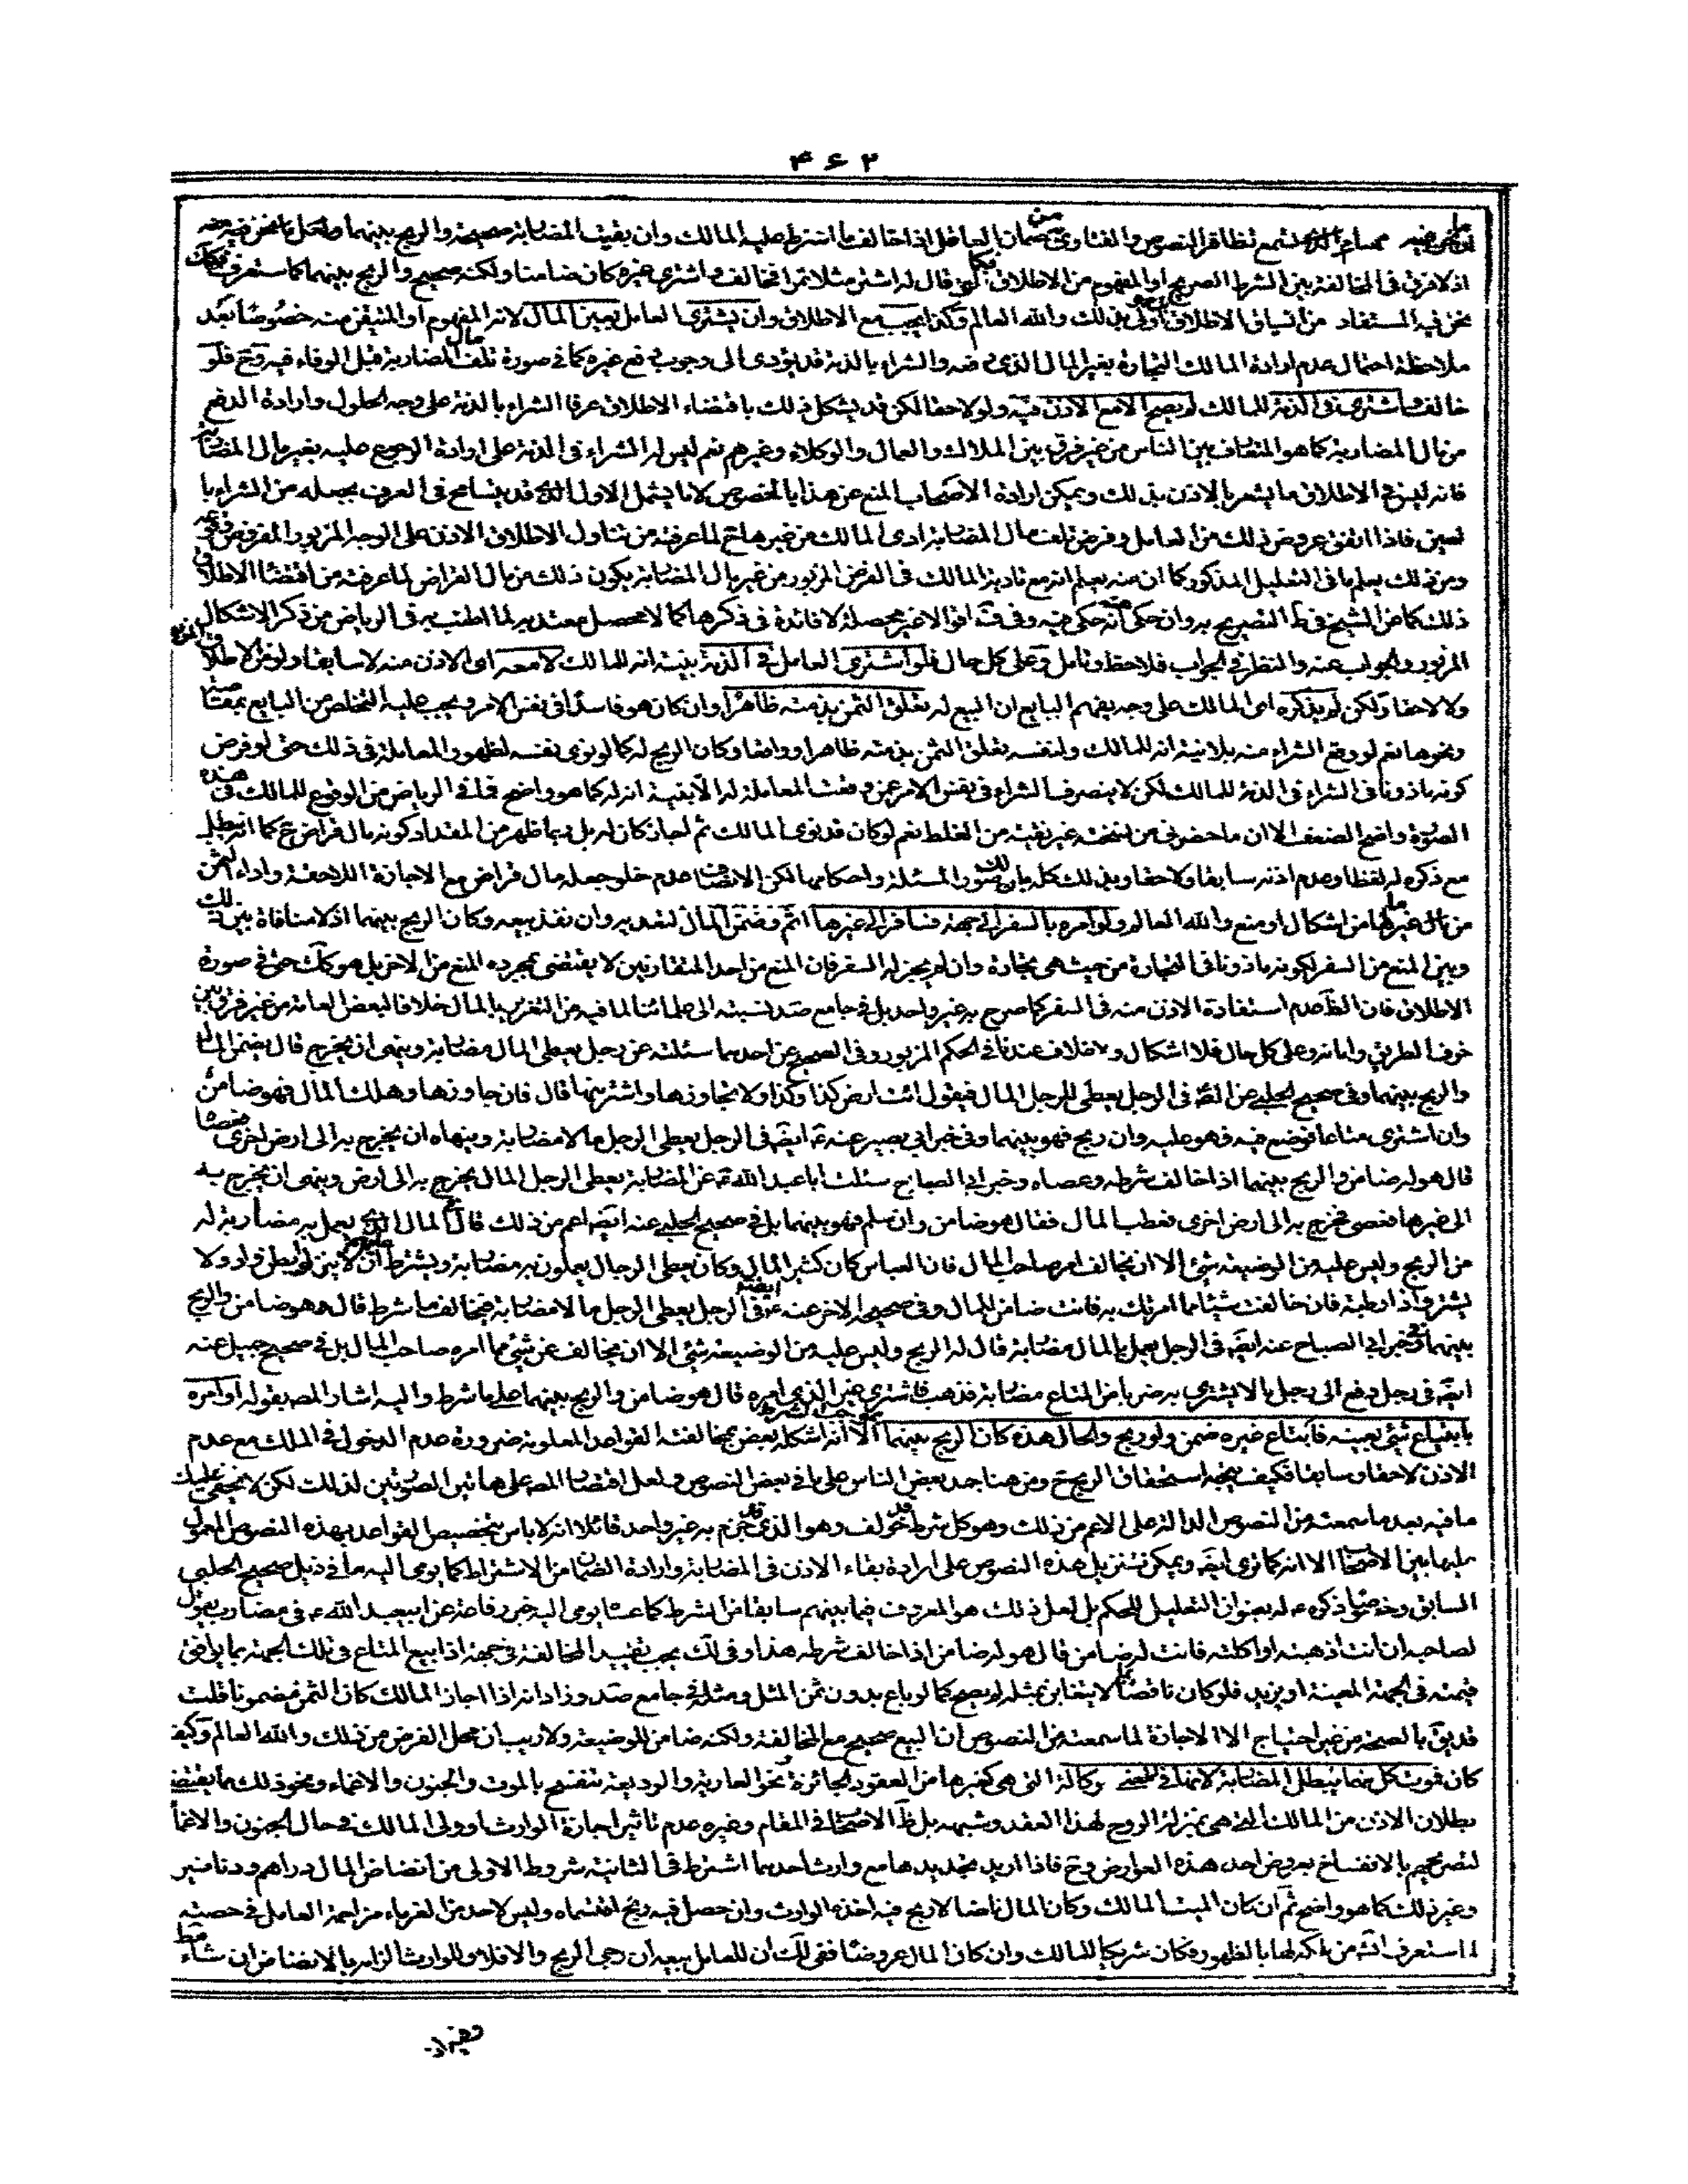 ۴۶۲
تسمع تظافر النصوص والفتاوى من ضمان العامل اذا خالف ما اشترط عليه المالك وان بقيت المضاربة صحيحة والربح بينهما ولعل ما نحن فيه منه
اذ لا فرق فى المخالفة بين الشرط الصريح او المفهوم من الاطلاق قال له اشتر مثلا تمرا فخالف واشترى غيره كان ضامنا ولكنه صحيح والربح بينهما كما ستعرف
نحن فيه المستفاد من انسياق الاطلاق اولى بذلك والله العالم وكذا يجب مع الاطلاق وان يشترى العامل بعين المال لانه المفهوم او المتيقن منه خصوصا بعد
ملاحظة احتمال عدم ارادة المالك التجارة بغير المال الذى دفعه والشراء بالذمة قد يؤدى الى وجوب دفع غيره كما فى صورة تلف مال المضاربة قبل الوفاء فيه وح فلو
خالف واشترى فى الذمة للمالك لم يصح الا مع الاذن فيه ولو لاحقا لكن قد يشكل ذلك باقتضاء الاطلاق عرفا الشراء بالذمة على وجه الحلول وارادة الدفع
من مال المضاربة كما هو المتعارف بين الناس من غير فرق بين الملاك والعمال والوكلاء وغيرهم نعم ليس له الشراء فى الذمة على ارادة الرجوع عليه بغير مال المضاربة
فانه ليس فى الاطلاق ما يشعر بالاذن بذلك ويمكن ارادة الاصحاب المنع عن هذا بالخصوص لا ما يشمل الاول الذى قد يتسامح فى العرف بجعله من الشراء با
لعين فاذا اتفق عروض ذلك من العامل وفرض تلف مال المضاربة ادى المالك من غيرها ح لما عرفته من تناول الاطلاق الاذن على الوجه المزبور المفروض
ومن ذلك يعلم ما فى التعليل المذكور كما ان منه يعلم انه مع تادية المالك فى الفرض المزبور من غير مال المضاربة يكون ذلك من مال القراض لما عرفته من اقتضاء الاطلاق
ذلك كما عن الشيخ فى ط التصريح به وان حكى عنه انه حكى فيه وفى ف اقوالا غير محصلة لا فائدة فى ذكرها كما لا محصل معتد به لما اطنب به فى الرياض من ذكر الاشكال
المزبور والجواب عنه والنظر فى الجواب فلاحظ وتامل وعلى كل حال فلو اشترى العامل فى الذمة بنية انه للمالك لا معه اى الاذن منه لا سابقا ولو من الاطلاق
ولا لاحقا ولكن لم يذكره اى المالك على وجه يفهم البايع ان المبيع له تعلق الثمن بذمته ظاهرا وان كان هو فاسدا فى نفس الامر ويجب عليه التخلص من البايع
ونحوها نعم لو وقع الشراء منه بلا نية انه للمالك ولنفسه تعلق الثمن بذمته ظاهرا وواقعا وكان الربح له كما لو نوى نفسه لظهور المعاملة فى ذلك حتى لو فرض
كونه ماذونا فى الشراء فى الذمة للمالك لكن لا ينصرف الشراء فى نفس الامر عمن وقعت المعاملة له الا بنية انه له كما هو واضح فما فى الرياض من الوقوع للمالك فى هذه
الصورة واضح الضعف الا ان ما حضرنى من نسخته غير نقية من الغلط نعم لو كان قد نوى المالك ثم اجاز كان له بل ربما ظهر من المقداد كونه مال قراض ح كما انه يبطل
مع ذكره له لفظا وعدم اذنه سابقا ولا لاحقا وبذلك كله بان لك صور المسئلة واحكامها لكن الانصاف عدم خلو جعله مال قراض مع الاجازة اللاحقة واداء الثمن
من مال غيرها من اشكال او منع والله العالم ولو امره بالسفر الى جهة فسافر الى غيرها اثم وضمن المال لتعديه وان نفذ بيعه وكان الربح بينهما اذ لا منافاة بين ذلك
وبين المنع من السفر لكونه ماذونا فى التجارة من حيث هى تجارة وان لم يجز له السفر فان المنع من احد المتقارنين لا يقتضى بمجرده المنع من الاخر بل هو كك حتى فى صورة
الاطلاق فان الظ عدم استفادة الاذن منه فى السفر كما صرح به غير واحد بل فى جامع صد نسبته الى علمائنا لما فيه من التغرير بالمال خلافا لبعض العامة من غير فرق بين
خوف الطريق وامانه وعلى كل حال فلا اشكال ولا خلاف عندنا فى الحكم المزبور وفى الصحيح عن احدهما سئلته عن رجل يعطى المال مضاربة وينهى ان يخرج قال يضمن المال
والربح بينهما وفى صحيح الحلبى عن الصم فى الرجل يعطى الرجل المال فيقول ائت ارض كذا وكذا ولا تجاوزها واشتر منها قال فان جاوزها وهلك المال فهو ضامن
وان اشترى متاعا فوضع فيه فهو عليه وان ربح فهو بينهما وفى خبر ابى بصير عنه ع ايضه فى الرجل يعطى الرجل مالا مضاربة وينهاه ان يخرج به الى ارض اخرى فعصاه
قال هو له ضامن والربح بينهما اذا خالف شرطه وعصاه وخبر ابى الصباح سئلت ابا عبد الله ع عن المضاربة يعطى الرجل المال يخرج به الى ارض وينهى ان يخرج به
الى غيرها فعصى فخرج به الى ارض اخرى فعطب المال فقال هو ضامن وان سلم فهو بينهما بل فى صحيح الحلبى عنه ايضه اعم من ذلك قال المال الذى يعمل به مضاربة له
من الربح وليس عليه من الوضيعة شئ الا ان يخالف امر صاحب المال فان العباس كان كثير المال وكان يعطى الرجال يعملون به مضاربة ويشترط ان لا ينزلوا بطن واد ولا
يشتروا ذا رطبة فان خالفت شيئا مما امرتك به فانت ضامن للمال وفى صحيحه الاخر عنه ع ايضه فى الرجل يعطى الرجل مالا مضاربة فيخالف ما شرط قال ع هو ضامن والربح
بينهما وفى خبر ابى الصباح عنه ايضه فى الرجل يعمل بالمال مضاربة قال له الربح وليس عليه من الوضيعة شئ الا ان يخالف عن شئ مما امره صاحب المال بل فى صحيح جميل عنه
ايضه فى رجل دفع الى رجل مالا يشترى به ضربا من المتاع مضاربة فذهب فاشترى غير الذى امره قال هو ضامن والربح بينهما على ما شرط واليه اشار المصه بقوله او امره
بابتياع شئ بعينه فابتاع غيره ضمن ولو ربح والحال هذه كان الربح بينهما بموجب الشرط الا انه اشكله بعض بمخالفته القواعد المعلومة ضرورة عدم الدخول فى الملك مع عدم
الاذن لاحقا وسابقا فكيف يتجه استحقاق الربح ح ومن هنا جمد بعض الناس على ما فى بعض النصوص ولعل اقتصار المصه على هاتين الصورتين لذلك لكن لا يخفى عليك
ما فيه بعد ما سمعت من النصوص الدالة على الاعم من ذلك وهو كل شرط قد خولف وهو الذى قد جزم به غير واحد قائلا انه لا باس بتخصيص القواعد بهذه النصوص المعمول
عليها بين الاصحاب الا انه كما ترى ايضه ويمكن تنزيل هذه النصوص على ارادة بقاء الاذن فى المضاربة وارادة الضمان من الاشتراط كما يومى اليه ما فى ذيل صحيح الحلبى
السابق وخصوصا ذكره ع له بعنوان التعليل للحكم بل لعل ذلك هو المعروف فيما بينهم سابقا من الشرط كما عساه يومى اليه خبر رفاعة عن ابى عبد الله ع فى مضارب يقول
لصاحبه ان انت اذهبته او اكلته فانت له ضامن قال هو له ضامن اذا خالف شرطه هذا وفى لك يجب تقييد المخالفة فى جهة اذا بيع المتاع فى تلك الجهة بما يوافق
قيمته فى الجهة المعينة او يزيد فلو كان ناقصا بما لا يتغابن بمثله لم يصح كما لو باع بدون ثمن المثل ومثله فى جامع صد وزاد انه اذا اجاز المالك كان الثمن مضمونا قلت
قد يق بالصحة من غير احتياج الى الاجازة لما سمعت من النصوص ان البيع صحيح مع المخالفة ولكنه ضامن للوضيعة ولا ريب ان محل الفرض من ذلك والله العالم وكيف
كان فموت كل منهما يبطل المضاربة لانها فى المعنى وكالة التى هى كغيرها من العقود الجائزة نحو العارية والوديعة تنفسخ بالموت والجنون والاغماء ونحو ذلك مما يقتضى
بطلان الاذن من المالك التى هى بمنزلة الروح لهذا العقد وشبهه بل ظ الاصحاب فى المقام وغيره عدم تاثير اجازة الوارث او ولى المالك فى حال الجنون والاغماء
لتصريحهم بالانفساخ بعروض احد هذه العوارض وح فاذا اريد تجديدها مع وارث احدهما اشترط فى الثانية شروط الاولى من انضاض المال دراهم ودنانير
وغير ذلك كما هو واضح ثم ان كان الميت المالك وكان المال ناضا لا ربح فيه اخذه الوارث وان حصل فيه ربح اقتسماه وليس لاحد من الغرباء مزاحمة العامل فى حصته
لما ستعرف انش من ملكه لها بالظهور فكان شريكا للمالك وان كان المال عروضا ففى لك ان للعامل بيعه ان رجى الربح والا فلا وللوارث الزامه بالانضاض ان شاء مط